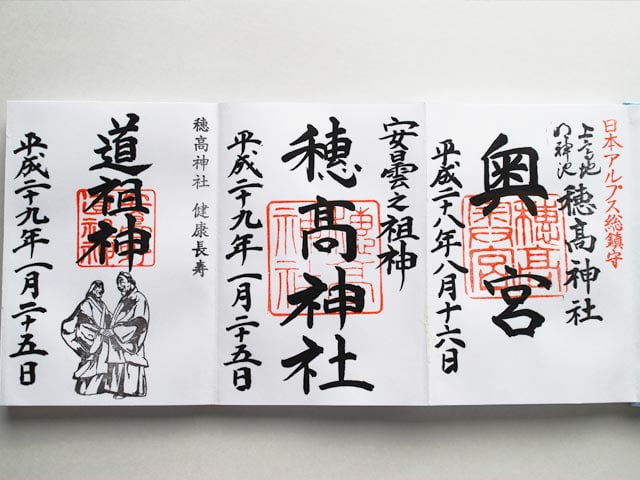 日本アルプス総鎮守
上高地
明神池
穂髙神社
奥宮
平成二十八年八月十六日
安曇之祖神
穂髙神社
平成二十九年一月二十五日
穂高神社 健康長寿
道祖神
平成二十九年一月二十五日